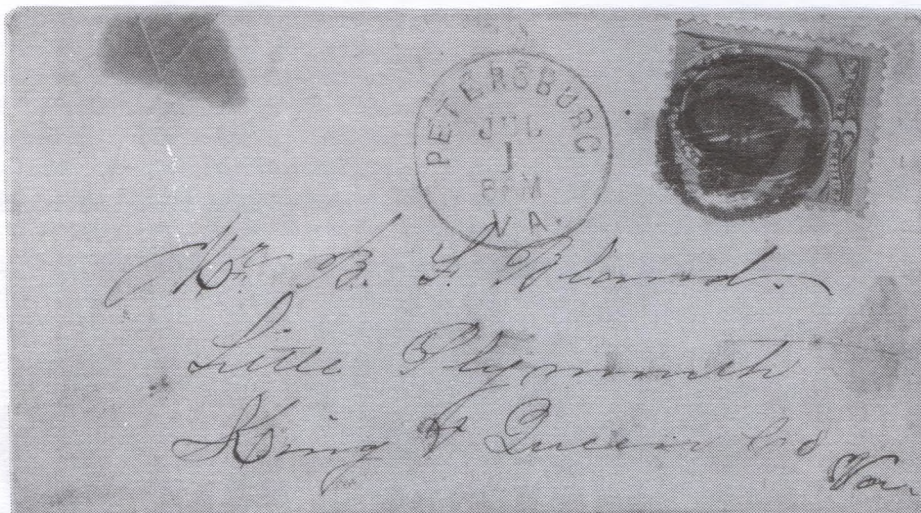 PETERSBURG
JUL
1
8 PM
VA.
Mr. B. F. Bland.
Little Plymouth
King & Queen Co
Va.